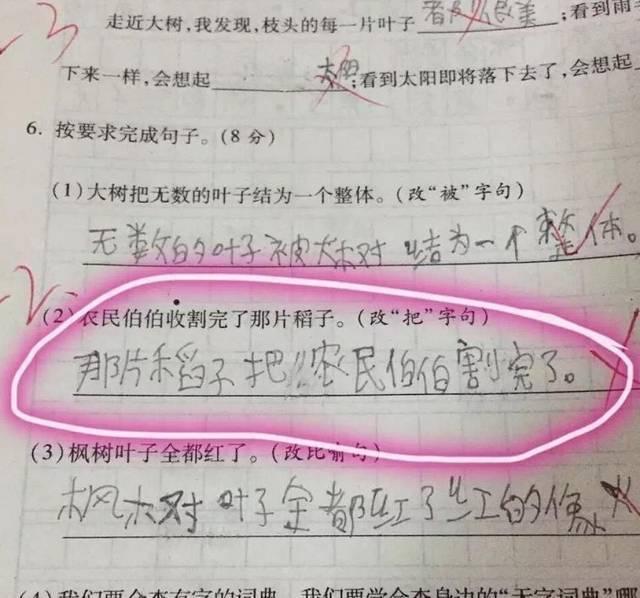 走近大树,我发现,枝头的每一片叶子______;看到雨
下来一样,会想起______;看到太阳即将落下去了,会想起
6. 按要求完成句子。(8分)
(1)大树把无数的叶子结为一个整体。(改“被”字句)
无数的叶子被大树结为一个整体。
(2)农民伯伯收割完了那片稻子。(改“把”字句)
那片稻子把农民伯伯割完了。
(3)枫树叶子全都红了。(改比喻句)
枫树叶子全都红了红的像火
(4)我们要会查有字的词典,我们要学会查身边的“无字词典”哪